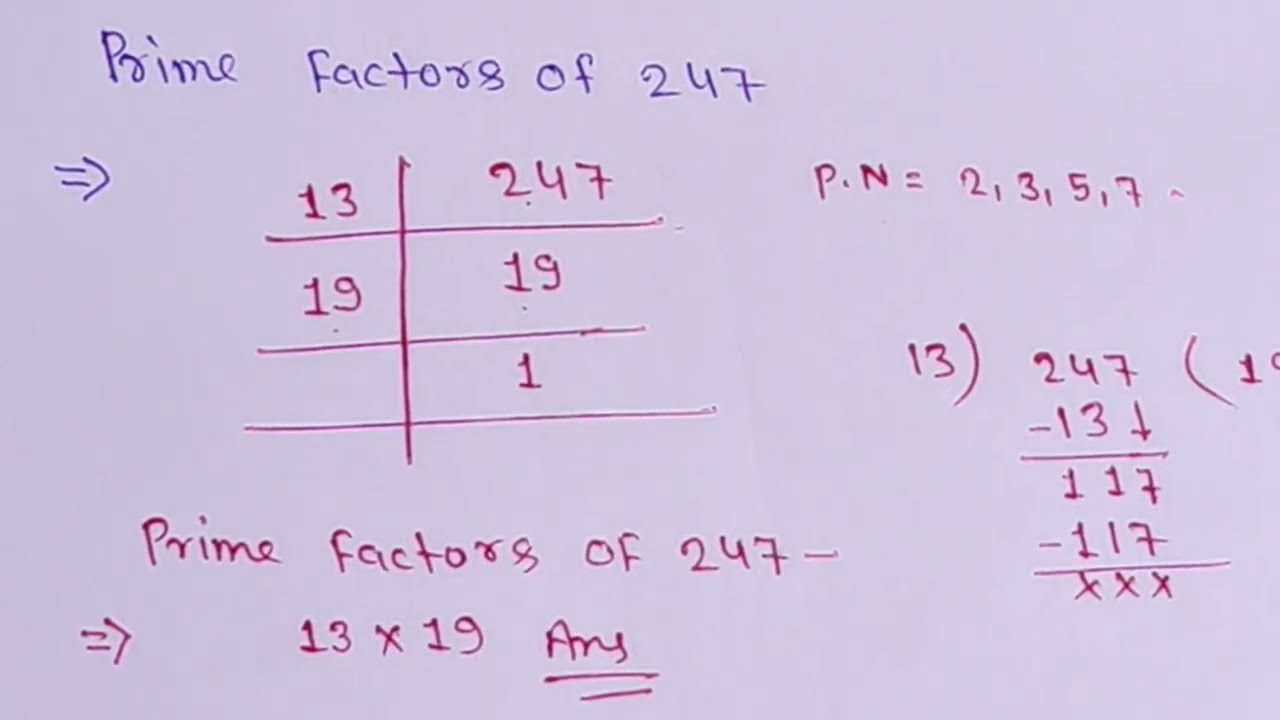 Prime Factors of 247
⇒
13 | 247
19 | 19
1
P.N = 2, 3, 5, 7
13) 247 (
-13↓
117
-117
×××
Prime Factors OF 247 -
⇒ 13 × 19 Ans